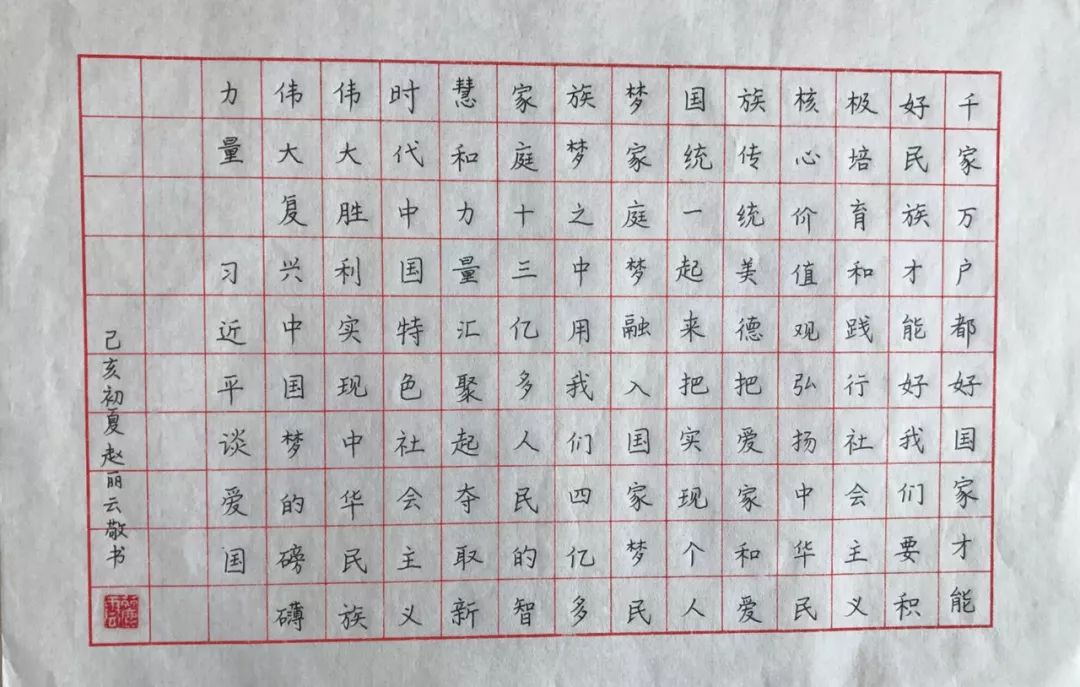 千家万户都好国家才能
好民族才能好我们要积
极培育和践行社会主义
核心价值观弘扬中华民
族传统美德把爱家和爱
国统一起来把实现个人
梦家庭梦融入国家梦民
族梦之中用我们四亿多
家庭十三亿多人民的智
慧和力量汇聚起夺取新
时代中国特色社会主义
伟大胜利实现中华民族
伟大复兴中国梦的磅礴
力量 习近平谈爱国
己亥初夏赵丽云敬书